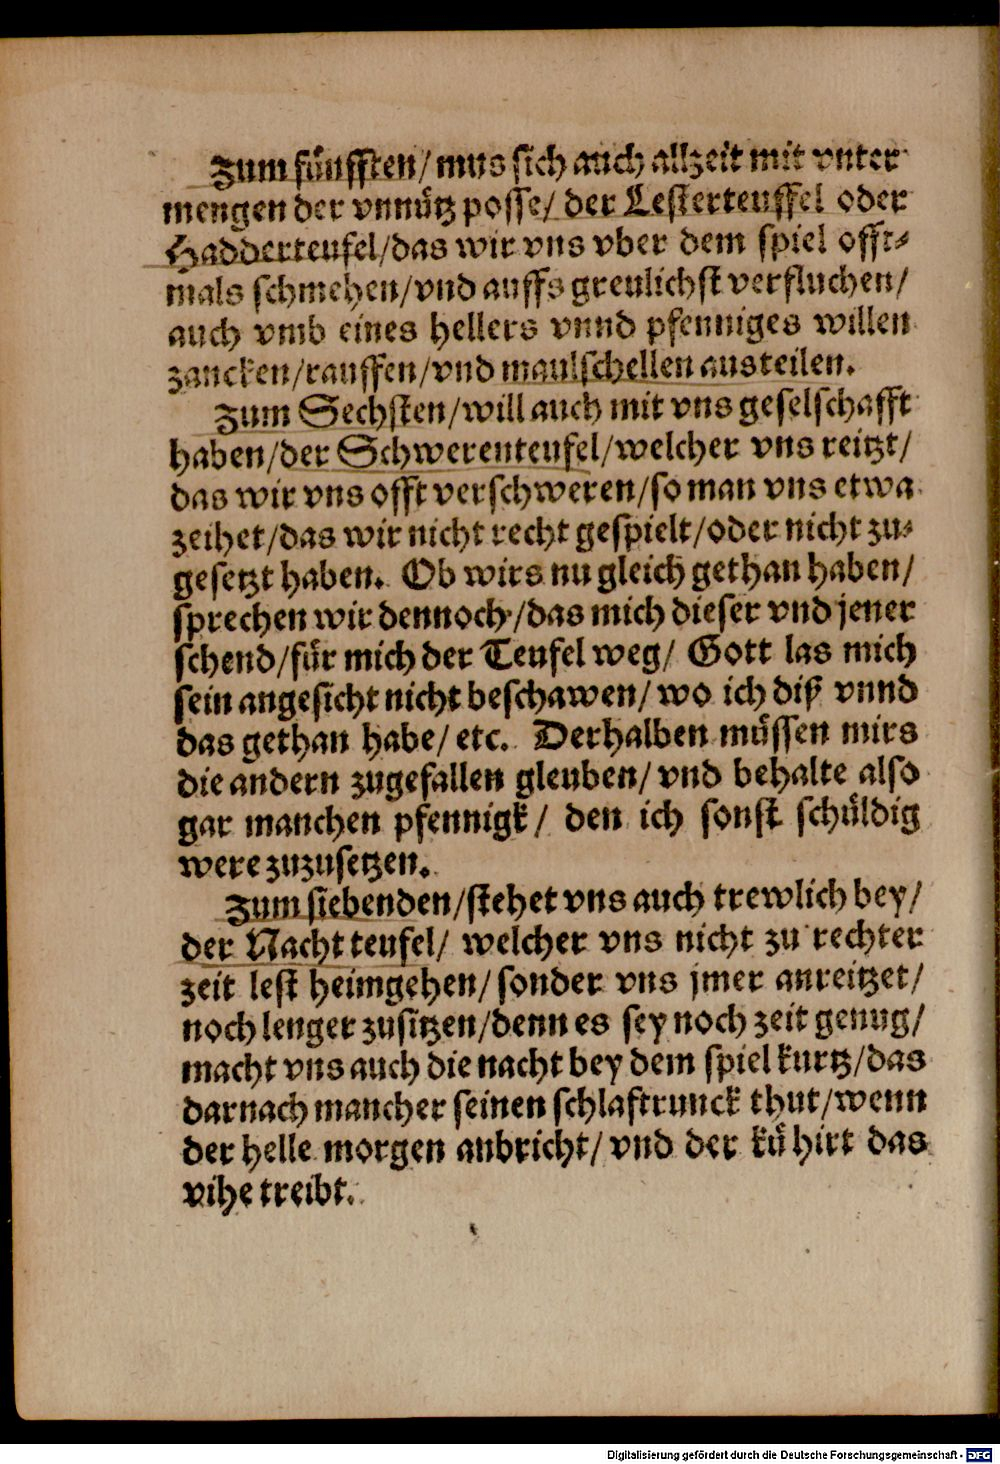 Zum fünfften/ mus sich auch allzeit mit vnter
mengen der vnnütz posse/ der Lesterteuffel oder
Hadderteufel/ das wir vns vber dem spiel offt-
mals schmehen/ vnd auffs greulichst verfluchen/
auch vmb eines hellers vnnd pfenniges willen
zancken/ rauffen/ vnd maulschellen austeilen.
Zum Sechsten/ will auch mit vns geselschafft
haben/ der Schwerenteufel/ welcher vns reitzt/
das wir vns offt verschweren/ so man vns etwa
zeihet/ das wir nicht recht gespielt/ oder nicht zu-
gesetzt haben. Ob wirs nu gleich gethan haben/
sprechen wir dennoch/ das mich dieser vnd jener
schend/ für mich der Teufel weg/ Gott las mich
sein angesicht nicht beschawen/ wo ich diß vnnd
das gethan habe/ etc. Derhalben müssen mirs
die andern zugefallen gleuben/ vnd behalte also
gar manchen pfennigk/ den ich sonst schüldig
were zuzusetzen.
Zum siebenden/ stehet vns auch trewlich bey/
der Nacht teufel/ welcher vns nicht zu rechter
zeit lest heimgehen/ sonder vns jmer anreitzet/
noch lenger zusitzen/ denn es sey noch zeit genug/
macht vns auch die nacht bey dem spiel kurtz/ das
darnach mancher seinen schlaftrunck thut/ wenn
der helle morgen anbricht/ vnd der kü hirt das
vihe treibt.
Digitalisierung gefördert durch die Deutsche Forschungsgemeinschaft - DFG